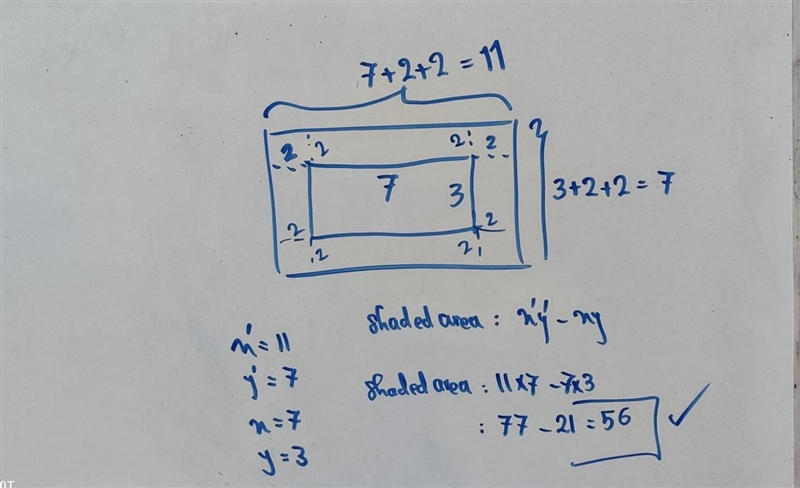 7+2+2=11
2 2 2 2
7 3
3+2+2=7
2 2
2 2
shaded area : x'y' - xy
x'=11
y'=7
shaded area : 11×7 - 7×3
x=7
: 77 - 21 = 56 ✓
y=3
OT